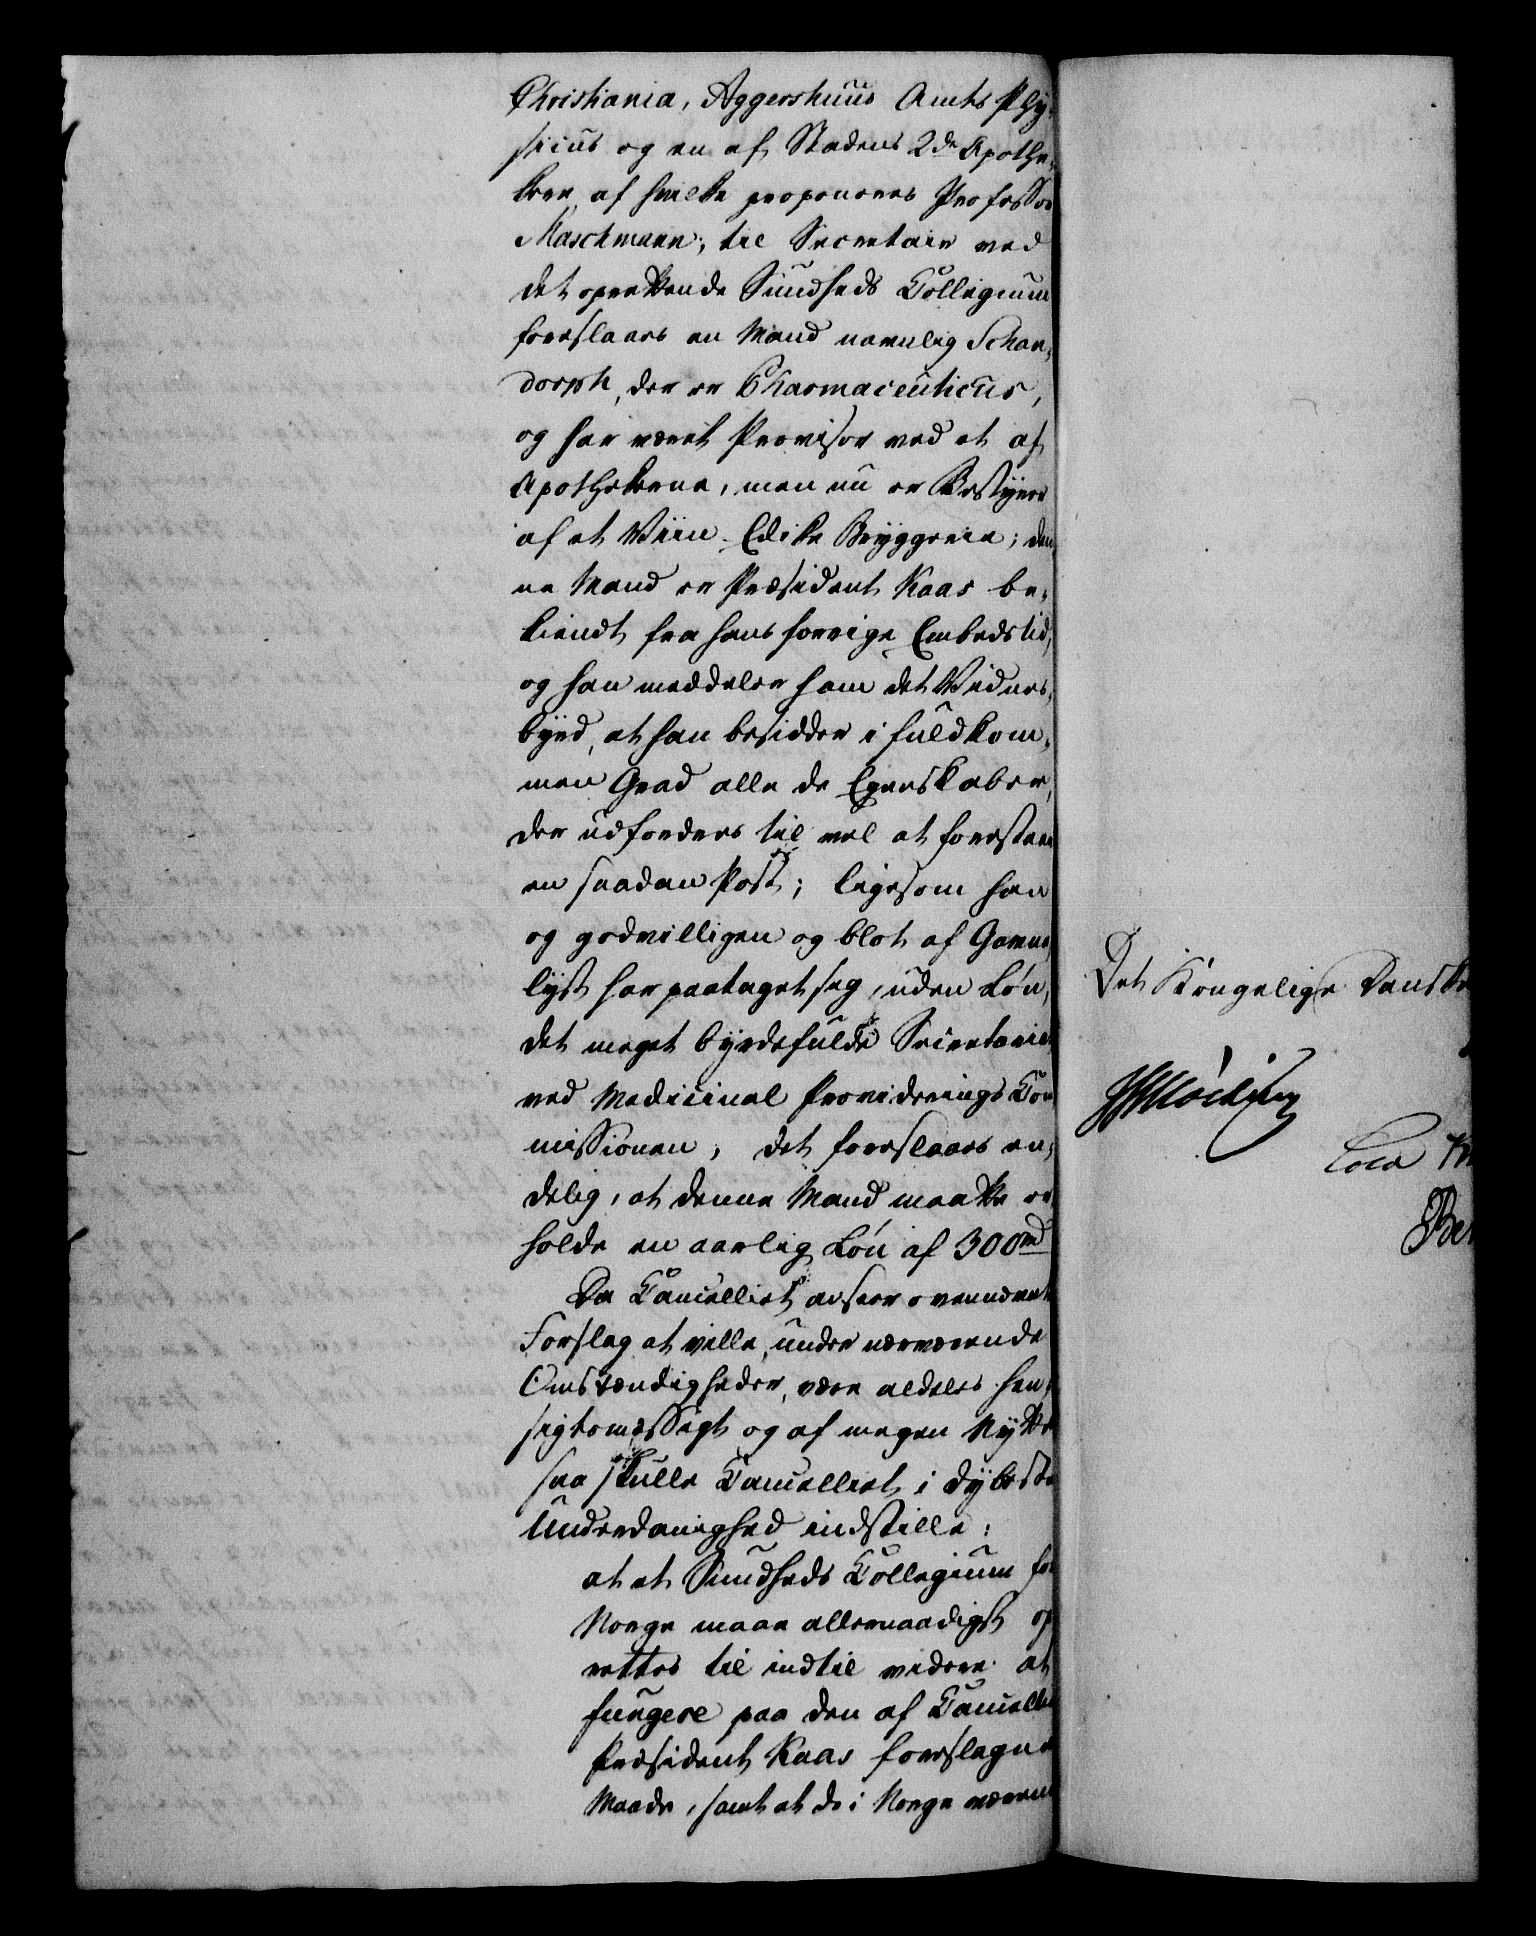 Christiania, Aggershuus Amts Phy-
sicus og en af Stadens 2de Apothe-
kere, af hvilke proponeres Professor
Maschmann; til Secretair ved
det oprettende Sundheds Collegium
foreslaaes en Mand navnlig Schan-
dorph, der er Pharmaceuticus,
og har været Provisor ved et af
Apothekerne, men nu er Bestyrer
af et Viin-Edike Bryggerie; den-
ne Mand er Præsident Kaas be-
kiendt fra hans forrige Embedstid,
og han meddeler ham det Vidnes-
byrd, at han besidder i fuldkom-
men Grad alle de Egenskaber,
der udfordres til vel at forestaae
en saadan Post; ligesom han
og godvilligen og blot af Gavne-
lyst har paataget sig, uden Løn,
det meget byrdefulde Secretariat
ved Medicinal Providerings Com-
missionen, det foreslaaes en-
delig, at denne Mand maatte er-
holde en aarlig Løn af 300 rd
Da Cancelliet anseer ovennævnte
Forslag at ville, under nærværende
Omstændigheder, være aldeles hen-
sigtsmæssigt og af megen Nytte
saa skulle Cancelliet i dybeste
Underdanighed indstille:
at et Sundheds Collegium for
Norge maae allernaadigst op-
rettes til indtil videre at
fungere paa den af Cancellie
Præsident Kaas foreslagne
Maade, samt at de i Norge værende
Det Kongelige Danske
Kaas